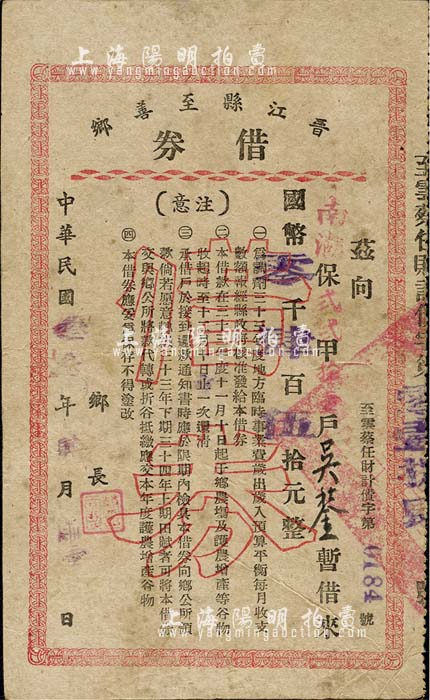 上海陽明拍賣
www.yangmingauction.com
晉江縣至善鄉
借券
至雲蔡任財計借字第 0184 號
茲向
南湖保 甲 戶吳 暫借來
國幣 千 百 拾元整
（注意）
㊀ 為調劑三十三年度地方臨時事業費歲出歲入預算平衡每月收支
數額報經縣政府核准發給本借券
㊁ 本借款在三十三年度十一月十日起于鄉農增及護農增產等谷物
收起時至十二月 日止一次還清
㊂ 承借戶於接到還款通知書時應於限期內檢具本借券向鄉公所領
款倘若願意 三十三年下期三十四年上期田賦者可將本借券
交與鄉公所將款代轉或折谷抵繳應交本年度護農增產谷物
㊃ 本借券應妥爲保存不得塗改
鄉長
中華民國 年 月 日
上海陽明拍賣
www.yangmingauction.com